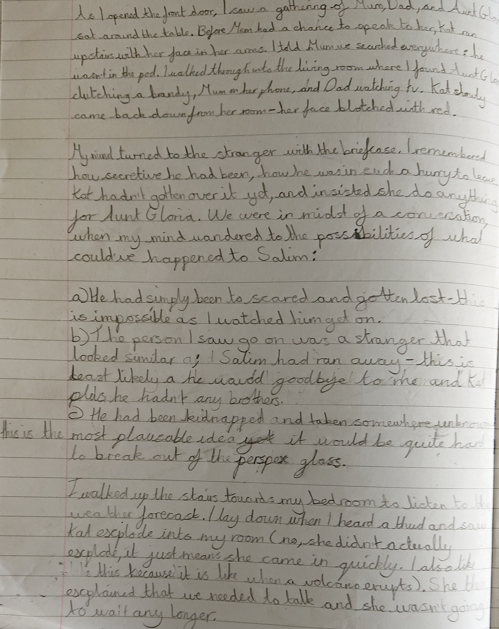 As I opened the front door, I saw a gathering of Mum, Dad, and Aunt Glo
sat around the table. Before Mum had a chance to speak to her, Kat ran
upstairs with her face in her arms. I told Mum we searched everywhere; he
wasn't in the pod. I walked through into the living room where I found Aunt Glor
clutching a brandy, Mum on her phone, and Dad watching tv. Kat slowly
came back down from her room-her face blotched with red.
My mind turned to the stranger with the briefcase. I remembered
how secretive he had been, how he was in such a hurry to leave
Kat hadn't gotten over it yet, and insisted she do anything
for Aunt Gloria. We were in midst of a conversation,
when my mind wandered to the possibilities of what
could've happened to Salim:
a) He had simply been to scared and gotten lost-this
is impossible as I watched him get on.
b) The person I saw go on was a stranger that
looked similar as Salim had ran away-this is
least likely a he waved goodbye to me and Kat
plus he hadn't any brothers.
c) He had been kidnapped and taken somewhere unknown
this is the most plausable idea yet it would be quite hard
to break out of the perspex glass.
I walked up the stairs towards my bedroom to listen to the
weather forecast. I lay down when I heard a thud and saw
Kat explode into my room (no, she didn't actually
explode, it just means she came in quickly. I also like
this because it is like when a volcano erupts). She then
escplained that we needed to talk and she wasn't going
to wait any longer.